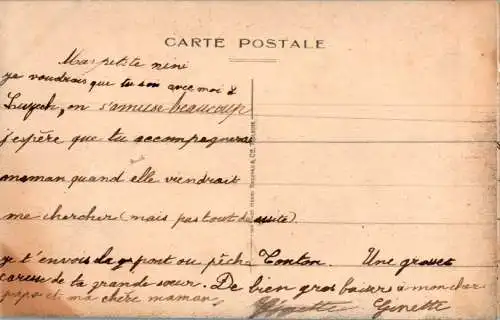 CARTE POSTALE
Ma petite nini
je voudrais que tu sois avec moi à
Luzech, on s'amuse beaucoup
j'espère que tu accompagneras
maman quand elle viendrait
me chercher (mais pas tout de suite).
je t'envois le pont ou pêche Tonton. Une grosse
caresse de ta grande sœur. De bien gros baisers à mon cher
papa et ma chère maman Ginette Ginette